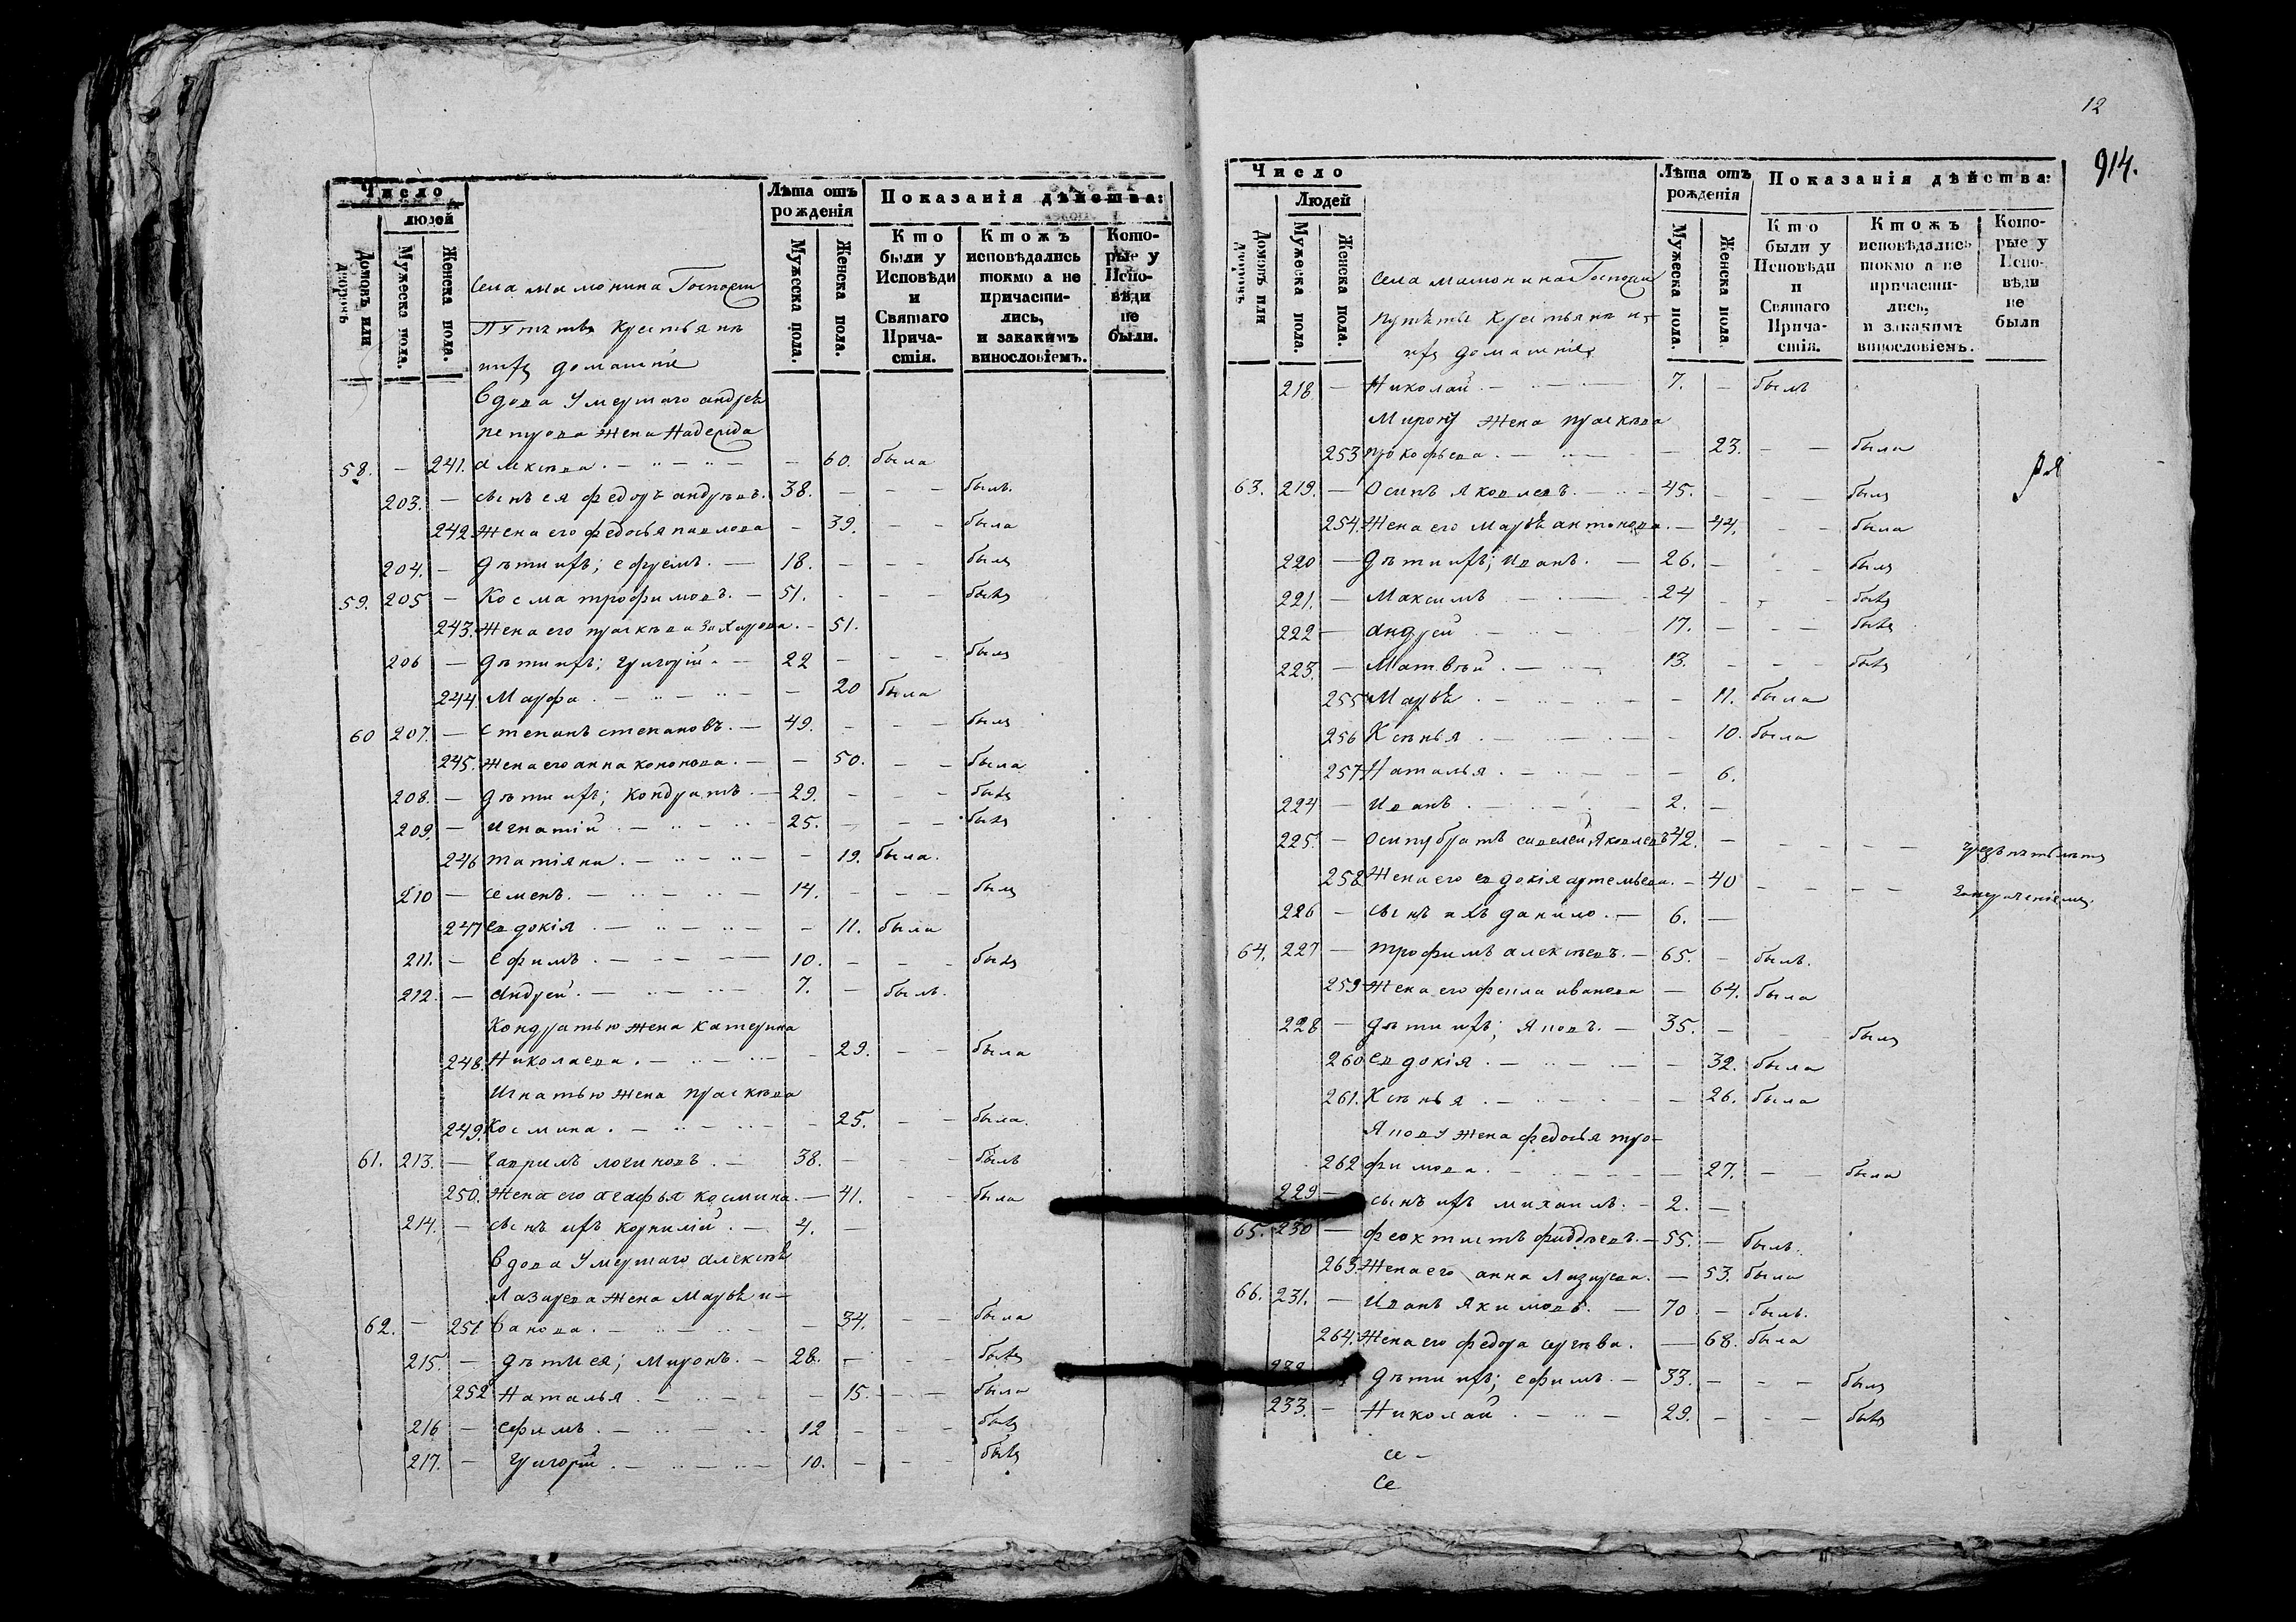 Число
людей
Домовъ или дворовъ
Мужеска пола.
Женска пола.
Села Мамонина Господи
Путятѣ Крестьяне
домашніе
Лѣта отъ рожденія
Мужеска пола.
Женска пола.
Показанія дѣйства:
Кто были у Исповѣди и Святаго Прича-
стія.
Ктожъ исповѣдались токмо а не причасти-
лись, и закакимъ винословіемъ.
Кото-
рые у Испо-
вѣди не были.
Вдова умершаго андрея
петрова жена Надежда
58. – 241. – 60. была
203. – сынъ ея федоръ андреевъ. 38. – – – былъ.
242 Жена его федосья павлова – 39. – – была
204. – дѣти ихъ; ефремъ. – 18. – – – былъ
59. 205 – Косма трофимовъ. – 51. – – – былъ
243. Жена его прасковья захарова. – 51.
206 – дѣти ихъ; григорій. – 22 – – – былъ
244. Марфа. – – 20 была
60 207. – степанъ степановъ. – 49. – – – былъ
245. Жена его анна кононова. – – 50. – – была
208. – дѣти ихъ; Кондратъ. – 29. – – – былъ
209. – игнатій. – 25. – – – былъ
246 татіяна. – – 19. была.
210 – семенъ. – 14. – – – былъ
247 евдокія – – 11. была
211. – ефимъ. – 10. – – – былъ
212. – Андрей. – 7. – былъ.
Кондратью жена Катерина
248. Николаева. – – 29. – – была
Игнатью жена прасковья
249. Космина. – – 25. – – была.
61. 213. – гаврилъ логиновъ. – 38. – – – былъ
250. Жена его агафья космина. – 41. – – была
214. – сынъ ихъ корнилій. – 4. –
Вдова умершаго алексѣя
Лазарева жена Марья и–
62. – 251 ванова. – – 34. – – была
215. – дѣти ея; Миронъ. – 28. – – – былъ
252 Наталья. – – 15. – – была
216 – ефимъ. – 12 – – – былъ
217. – Григорій. – 10. – – – былъ
12
914.
Число
Людей
Домовъ или дворовъ
Мужеска пола.
Женска пола.
Села мамонина Господи
путяты Крестьяне и
домашніе
Лѣта отъ рожденія
Мужеска пола.
Женска пола.
Показанія дѣйства:
Кто были у Исповѣди и Святаго Прича-
стія.
Ктожъ исповѣдались токмо а не причасти-
лись, и закакимъ винословіемъ.
Кото-
рые у Испо-
вѣди не были
218 – Николай. – 7. – былъ
Мирону жена прасковья
253 прокофьева. – – 23. – – была
63. 219. – Осипъ яковлевъ. – 45. – – – былъ
254. Жена его марья антонова. – 44. – – была
220 – дѣти ихъ; иванъ. – 26. – – – былъ
221. – Максимъ – 24 – – – былъ
222 – андрей – 17. – – – былъ
223. – Матвѣй. – 13. – – – былъ
255 Марья. – – 11. была
256 Ксенья. – – 10. была
257 Наталья. – – 6.
224 – иванъ. – 2. –
225. – осипу братъ савелей яковлевъ 42. – – – –
258 Жена его евдокія артемьева. – 40 – – –
226 – сынъ ихъ данило. – 6. –
64. 227 – трофимъ алексѣевъ. – 65. – былъ.
259 Жена его фекла иванова – 64. была
228 – дѣти ихъ; яковъ. – 35. – – былъ
260 евдокія. – – 32. была
261. Ксенья. – – 26. была
Якову жена федосья тро–
262 фимова. – – 27. – была
229 – сынъ ихъ михаилъ. – 2. –
65. 230 – феоктистъ – 55. – былъ.
263. Жена его анна лазарева. – 53. была
66. 231. – иванъ якимовъ. – 70 – былъ.
264. Жена его федора – 68. была
232 дѣти ихъ; ефимъ. – 33. – – – былъ
233. – Николай. – 29. – – – былъ
се –
Се